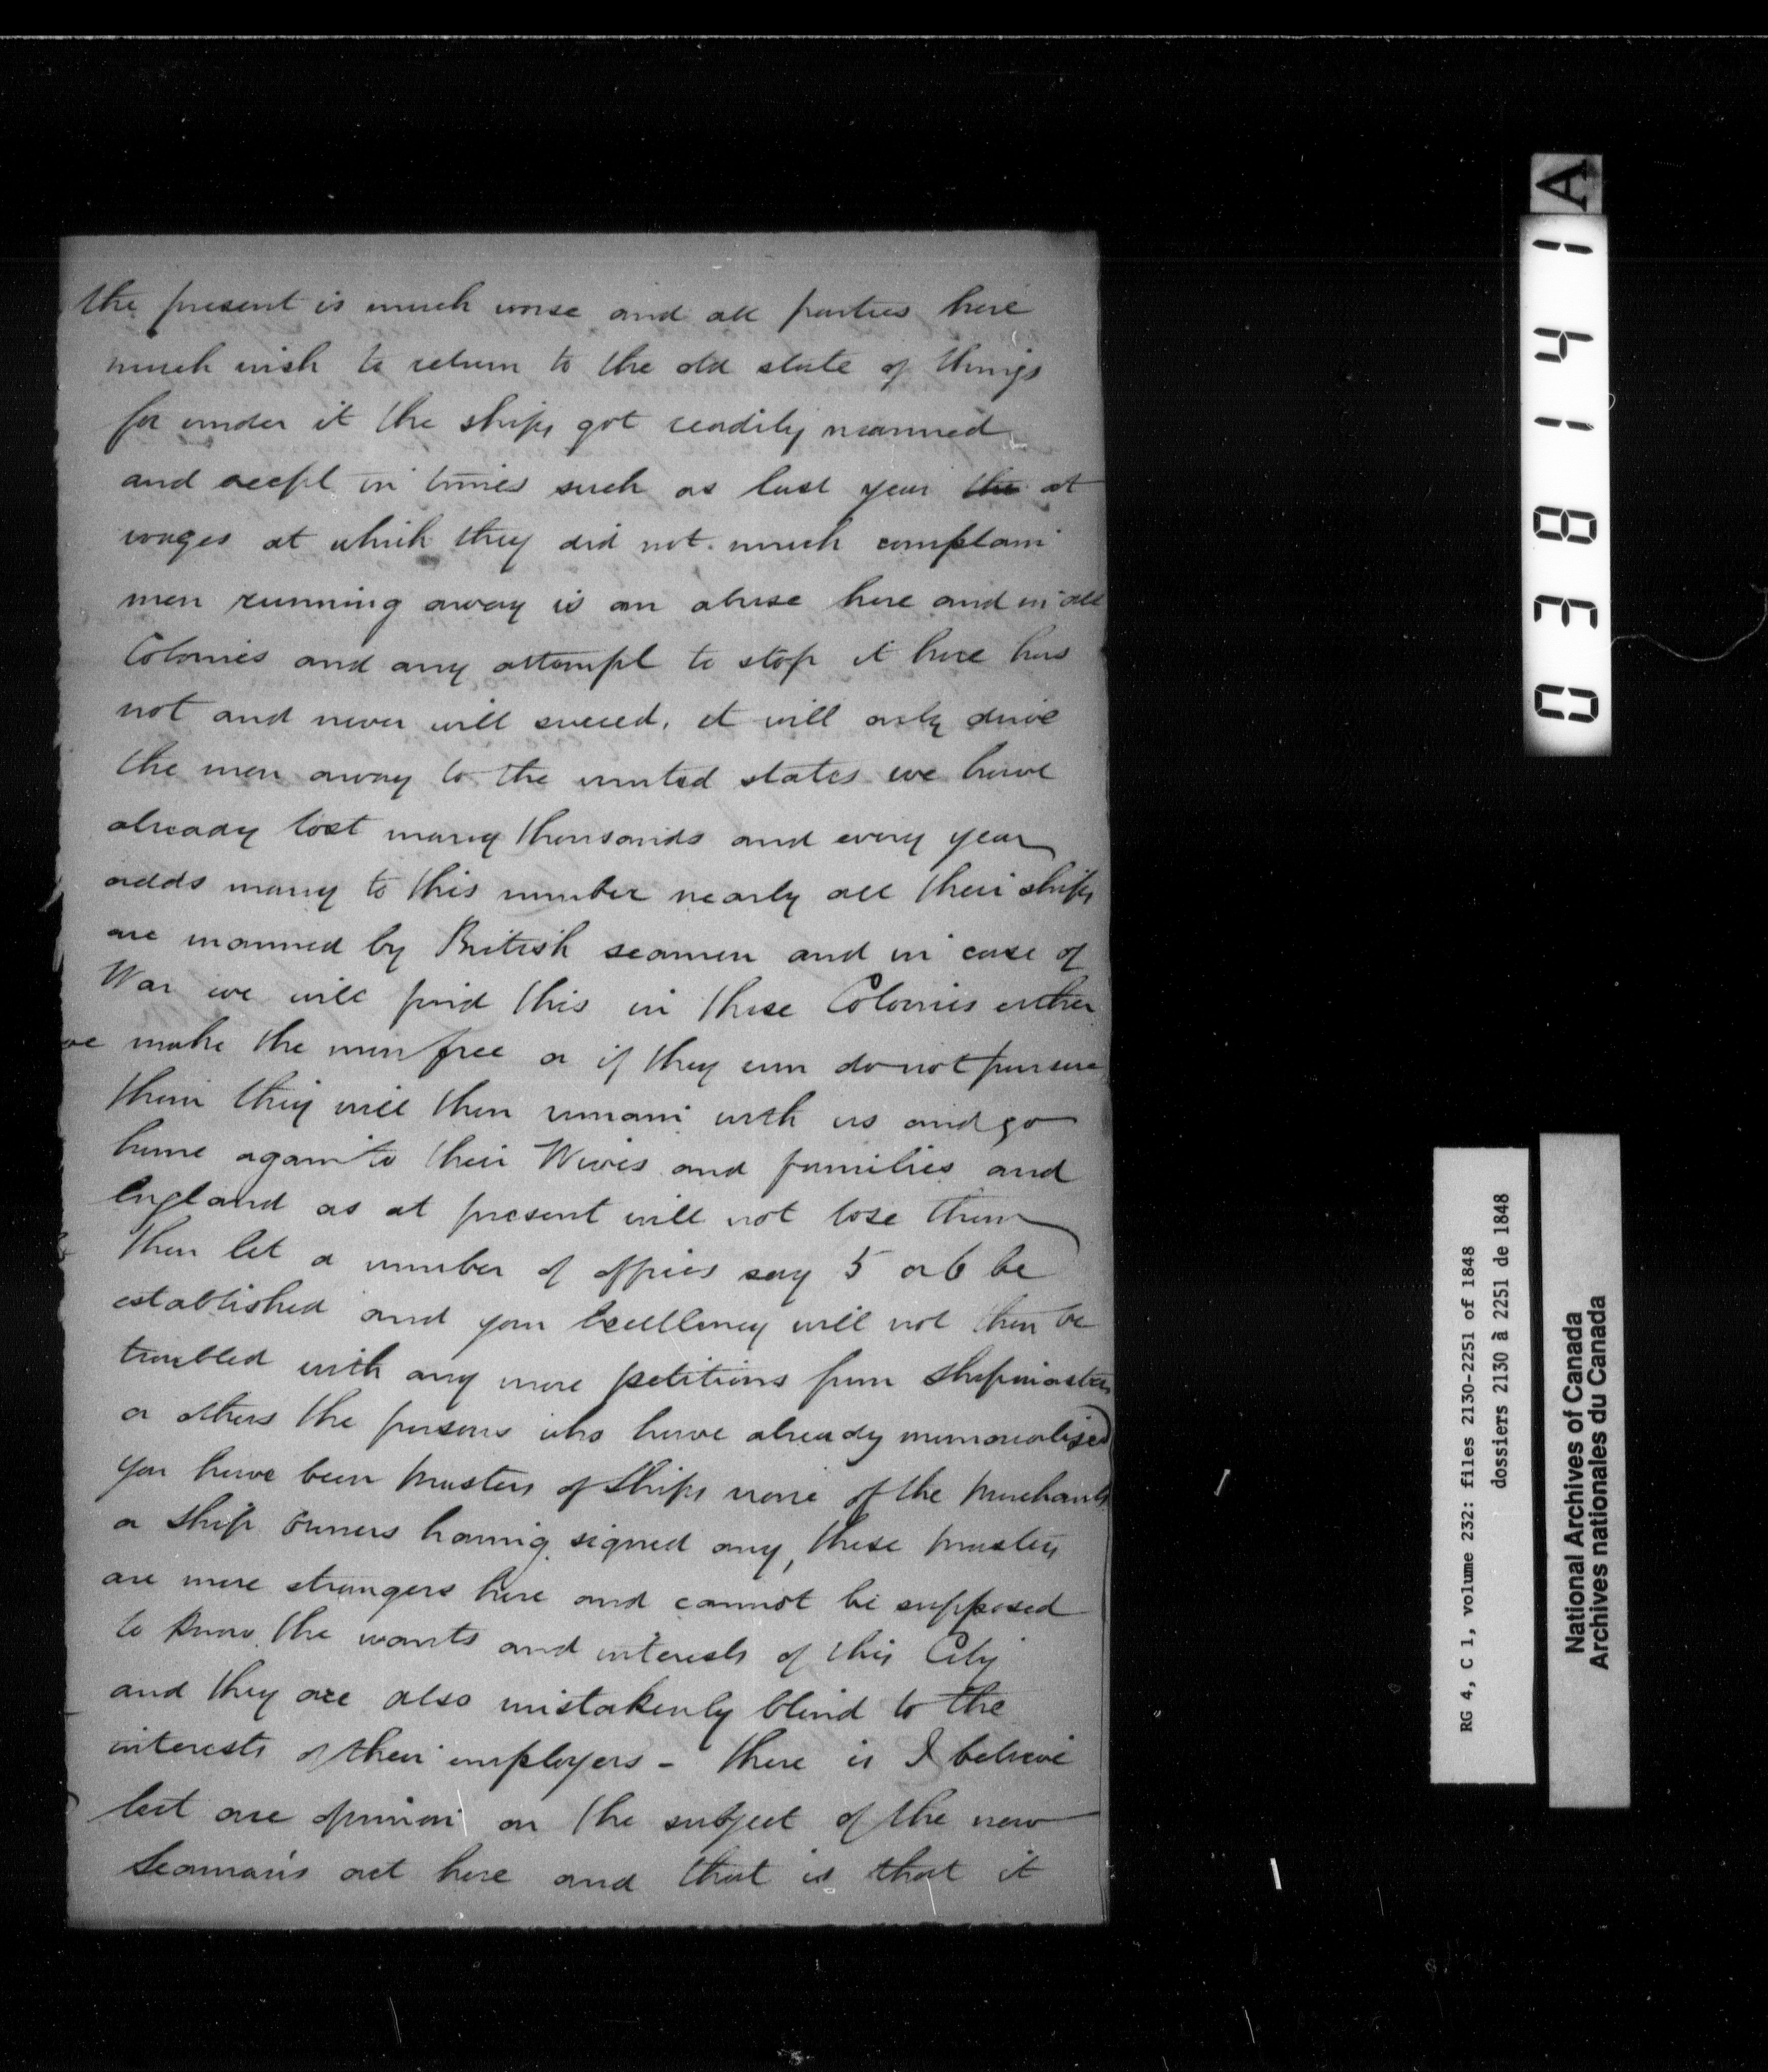 the present is much worse and all parties here
much wish to return to the old state of things
for under it the ships got readily manned
and accept in times such as last year the at
wages at which they did not much complain
men running away is an abuse here and in all
Colonies and any attempt to stop it here has
not and never will succeed, it will only drive
the men away to the united states we have
already lost many thousands and every year
adds many to this number nearly all their ships
are manned by British seamen and in case of
War we will find this in these Colonies either
we make the men free or if they run do not pursue
them they will then remain with us and go
home again to their Wives and families and
England as at present will not lose them
Then let a number of offices say 5 or 6 be
established and your Excellency will not then be
troubled with any more petitions from Shipmasters
or others the persons who have already memorialised
you have been Masters of Ships none of the Merchants
or Ship Owners having signed any, these Masters
are mere strangers here and cannot be supposed
to know the wants and interests of this City
and they are also mistakenly blind to the
interests of their employers - there is I believe
but one opinion on the subject of the new
Seaman's act here and that is that it
A
038141
RG 4, C 1, volume 232: files 2130-2251 of 1848
dossiers 2130 à 2251 de 1848
National Archives of Canada
Archives nationales du Canada